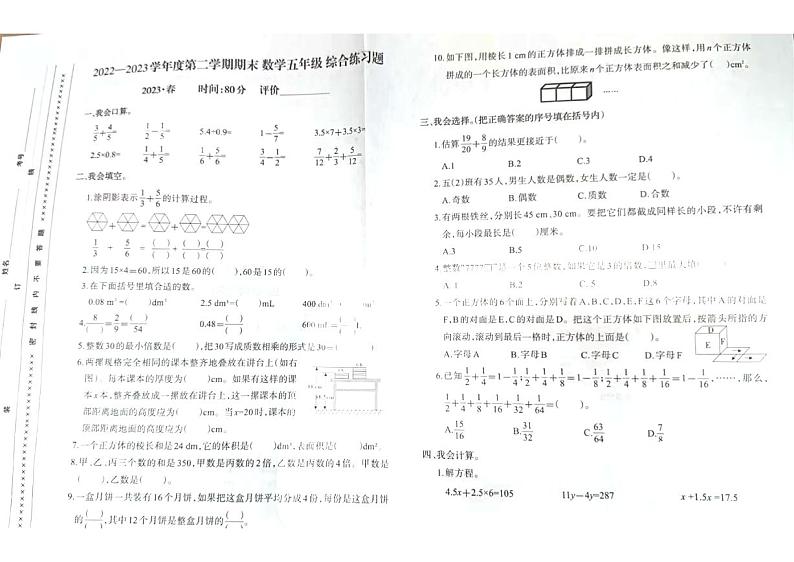 2022—2023学年度第二学期期末 数学五年级 综合练习题
2023·春 时间:80分 评价
一、我会口算。
3/5+4/5 1/2-1/5 5.4÷0.9= 1-5/7= 3.5×7+3.5×3=
2.5×0.8= 1/4+1/5 1/6+5/6= 3/4-1/2= 7/12+2/3+5/12=
二、我会填空。
1.涂阴影表示1/3+5/6的计算过程。
1/3 + 5/6 = ( )/( ) + ( )/( ) = ( )/( )
2.因为15×4=60,所以15是60的( ),60是15的( )。
3.在下面括号里填合适的数。
0.08 m³=( )dm³ 2.5 dm³=( )mL
4. 8/( )=2/9=( )/54 0.48=( )/( )
5.整数30的最小倍数是( ),把30写成质数相乘的形式是30=
6.两摞规格完全相同的课本整齐地叠放在讲台上(如右
图)。每本课本的厚度为( )cm。如果有这样的课
本x本,整齐叠放成一摞放在讲台上,这一摞课本的顶
部距离地面的高度应为( )cm。当x=20时,课本的
顶部距离地面的高度应为( )cm。
7.一个正方体的棱长和是24 dm,它的体积是( )dm³,表面积是( )dm²。
8.甲、乙、丙三个数的和是350,甲数是丙数的2倍,乙数是丙数的4倍。甲数是
( ),乙数是( )。
9.一盒月饼一共装有16个月饼,如果把这盒月饼平均分成4份,每份是这盒月饼
的( )/( ),其中12个月饼是整盒月饼的( )/( )。
10.如下图,用棱长1 cm的正方体排成一排拼成长方体。像这样,用n个正方体
拼成的一个长方体的表面积,比原来n个正方体表面积之和减少了( )cm²。
……
三、我会选择。(把正确答案的序号填在括号内)
1.估算19/20+8/9的结果更接近于( )。
A.1 B.2 C.3 D.4
2.五(2)班有35人,男生人数是偶数,女生人数一定是( )。
A.奇数 B.偶数 C.质数 D.合数
3.有两根铁丝,分别长45 cm、30 cm。要把它们都截成同样长的小段,不许有剩
余,每小段最长是( )厘米。
A.3 B.5 C.10 D.15
5.一个正方体的6个面上,分别写着A、B、C、D、E、F这6个字母,其中A的对面是
F,B的对面是E,C的对面是D。把这个正方体如下图放置后,按箭头所指的方
向滚动,滚动到最后一格时,正方体的上面是( )。
A.字母A B.字母B C.字母D D.字母E
D E F
6.已知1/2+1/4=1-1/4,1/2+1/4+1/8=1-1/8,1/2+1/4+1/8+1/16=1-1/16,……,那么,
1/2+1/4+1/8+1/16+1/32+1/64=( )
A.15/16 B.31/32 C.63/64 D.7/8
四、我会计算。
1.解方程。
4.5x+2.5×6=105 11y-4y=287 x+1.5x=17.5
考号
姓名
密 封 线 内 不 要 答 题
装
订